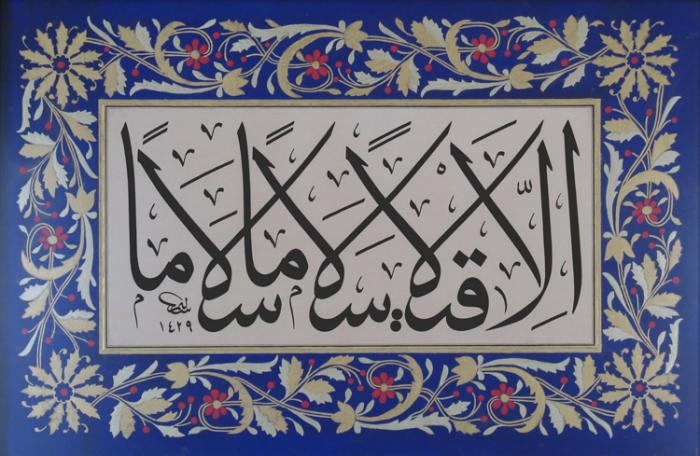 إِلَّا قِيلًا سَلَامًا سَلَامًا
١٤٢٩